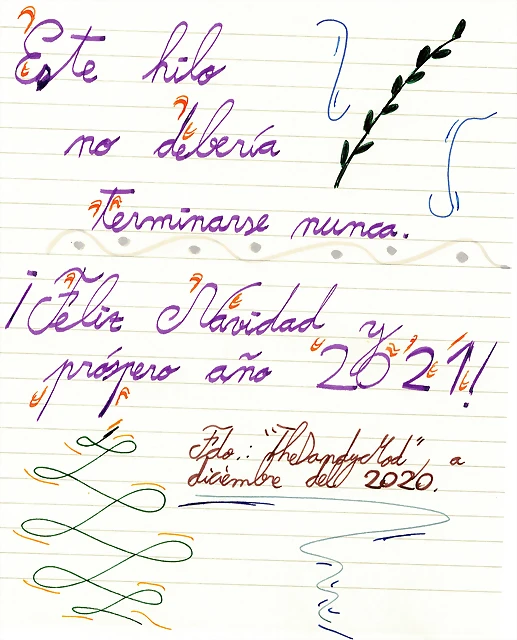 Este hilo
no debería
terminarse nunca.
¡Feliz Navidad y
próspero año 2021!
Fdo.: "TheDandyMod" a
diciembre del 2020.